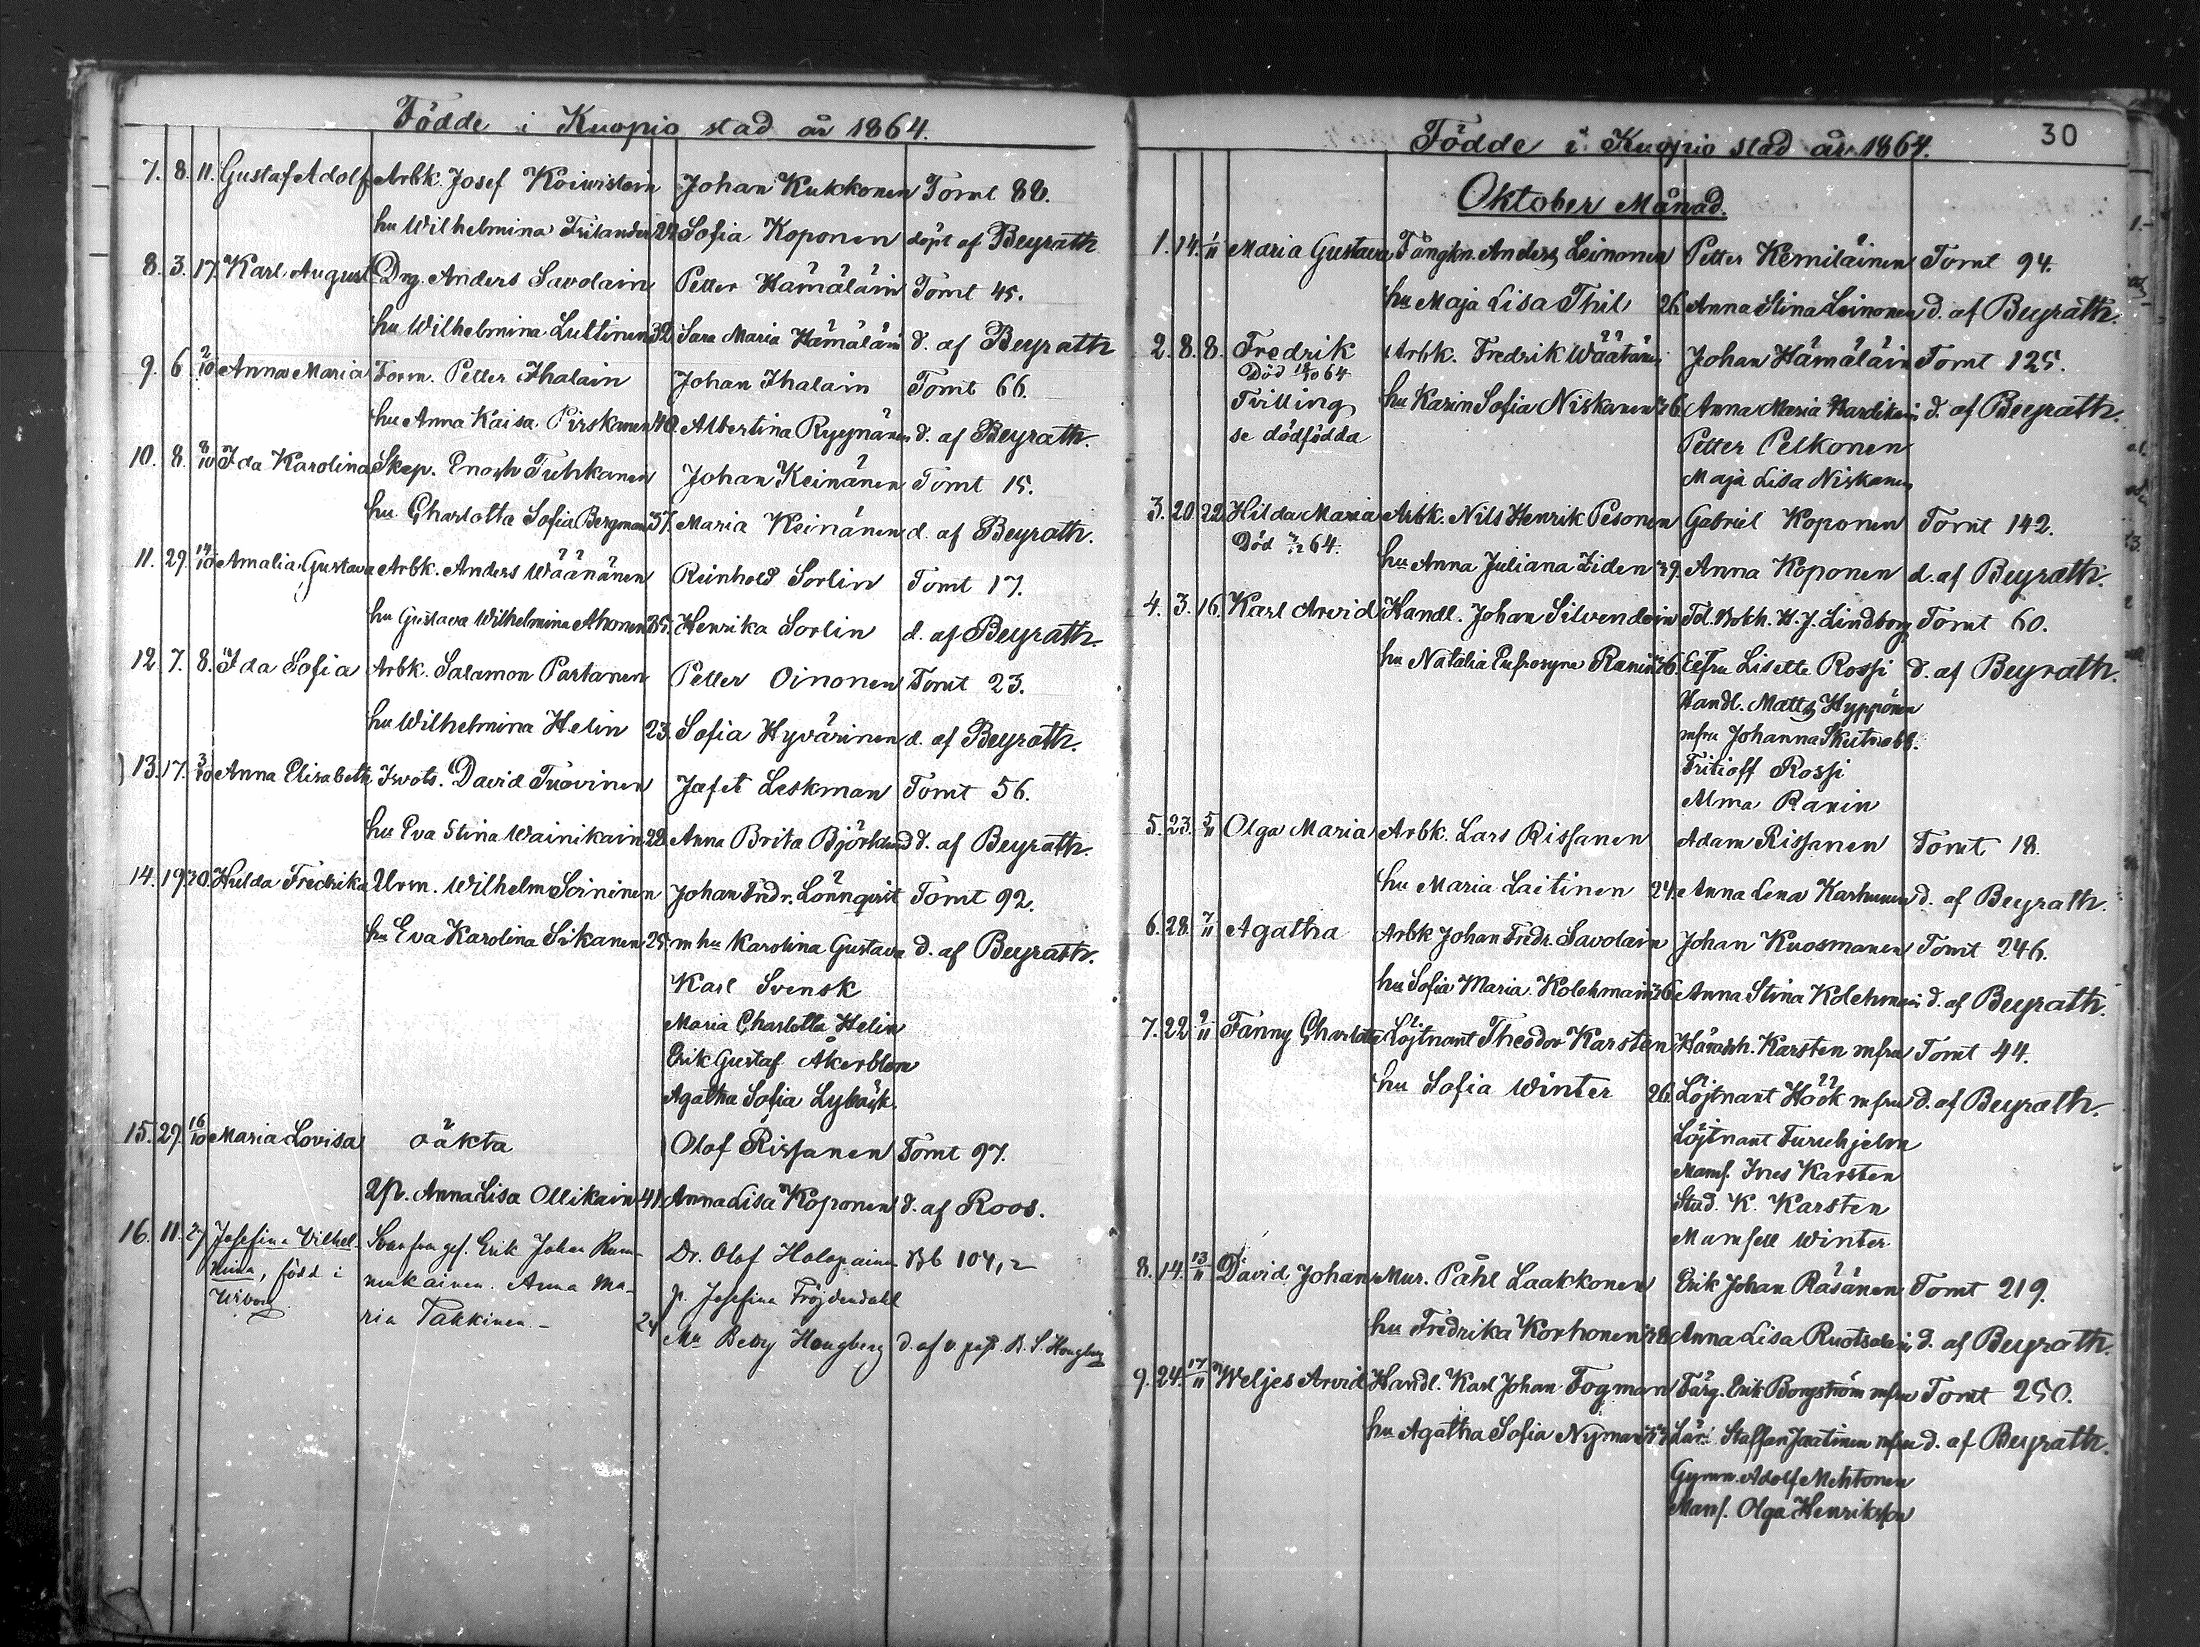 Födde i Kuopio stad år 1864.
7. 8. 11. Gustaf Adolf Arbk. Josef Koiwistoin Johan Kukkonen Tomt 88.
hu Wilhelmina Frilander Sofia Koponen döpt af Beyrath
8. 3. 17. Karl August Drg. Anders Savolain Petter Hämäläin Tomt 45.
hu Wilhelmina Luttinen 32. Sara Maria Hämäläin d. af Beyrath
9. 6 2/10 Anna Maria Form. Petter Ihalain Johan Ihalain Tomt 66.
hu Anna Kaisa Pirskanen 40. Albertina Ryynänen d. af Beyrath.
10. 8. 9/10 Ida Karolina Skep. Enoch Tuhkanen Johan Keinänen Tomt 15.
hu Charlotta Sofia Bergman 37. Maria Keinänen d. af Beyrath.
11. 29. 14/10 Amalia Gustava Arbk. Anders Wäänänen Reinhold Sorlin Tomt 17.
hu Gustava Wilhelmina Ahonen 35. Henrika Sorlin d. af Beyrath.
12. 7. 8. Ida Sofia Arbk. Salamon Partanen Petter Oinonen Tomt 23.
hu Wilhelmina Helin 23. Sofia Hyvärinen d. af Beyrath.
13. 17. 3/10 Anna Elisabeth Invots. David Tuovinen Jafet Leskman Tomt 56.
hu Eva Stina Wainikain 22. Anna Brita Björklund d. af Beyrath.
14. 19. 30. Hulda Fredrika Urm. Wilhelm Soininen Johan Fredr. Lönnqvist Tomt 92.
hu Eva Karolina Sikanen 25. m hu Karolina Gustava d. af Beyrath.
Karl Svensk
Maria Charlotta Helin
Erik Gustaf Åkerblom
Agatha Sofia Lybäck.
15. 29. 16/10 Maria Lovisa oäkta Olof Rissanen Tomt 97.
Anna Lisa Ollikain 41. Anna Lisa Koponen d. af Roos.
16. 11. 27 Josefina Vilhel- Erik Johan Rum- Dr. Olof Holopainen Bb 104,
mina, född i mukainen. Anna Ma- p. Josefina Fröjdendahl
Wiborg ria Takkinen. - 24 Betty Hougberg d. af v. past. B. S. Hougberg
Födde i Kuopio stad år 1864. 30
Oktober Månad.
1. 14. 1/11 Maria Gustava Fångkn. Anders Leinonen Petter Kemiläinen Tomt 94.
hu Maja Lisa Thil 26. Anna Stina Leinonen d. af Beyrath.
2. 8. 8. Fredrik Arbk. Fredrik Wäätäin Johan Hämäläin Tomt 125.
Död 18/10 64
Tvilling hu Karin Sofia Niskanen 26. Anna Maria Kardikain d. af Beyrath.
se dödfödda Petter Pelkonen
Maja Lisa Niskanen
3. 20. 22. Hilda Maria Arbk. Nils Henrik Pesonen Gabriel Koponen Tomt 142.
Död 64.
hu Anna Juliana Ziden 29. Anna Koponen d. af Beyrath.
4. 3. 16. Karl Arvid Handl. Johan Silvendoin Fd. Bokh. H. J. Lindborg Tomt 60.
hu Natalia Eufrosyne Ranin 26. Enkefru Lisette Rossi d. af Beyrath.
Handl. Matts Hyppönen
mfru Johanna Skutnabb.
Fritioff Rossi
Alma Ranin
5. 23. 5/11 Olga Maria Arbk. Lars Rissanen Adam Rissanen Tomt 18.
hu Maria Laitinen 24. Anna Lena Karhunen d. af Beyrath.
6. 28. 7/11 Agatha Arbk Johan Fredr. Savolain Johan Kuosmanen Tomt 246.
hu Sofia Maria Kolehmain 36. Anna Stina Kolehmain d. af Beyrath.
7. 22. 9/11 Fanny Charlotta Löjtnant Theodor Karsten Häradsh. Karsten mfru Tomt 44.
hu Sofia Winter 26. Löjtnant Höök mfru d. af Beyrath.
Löjtnant Furuhjelm
Mamf. Ines Karsten
Stud. K. Karsten
Mamsell Winter
8. 14. 13/11 David Johan Mur. Påhl Laakkonen Erik Johan Räsänen Tomt 219.
hu Fredrika Korhonen Anna Lisa Ruotsalain d. af Beyrath.
9. 24. 17/11 Weljes Arvid Handl. Karl Johan Fogman Färg. Erik Borgström mfru Tomt 250.
hu Agatha Sofia Nyman Lär. Staffan Jaatinen mfru d. af Beyrath.
Gymn. Adolf Mehtonen
Mamf. Olga Henriksson